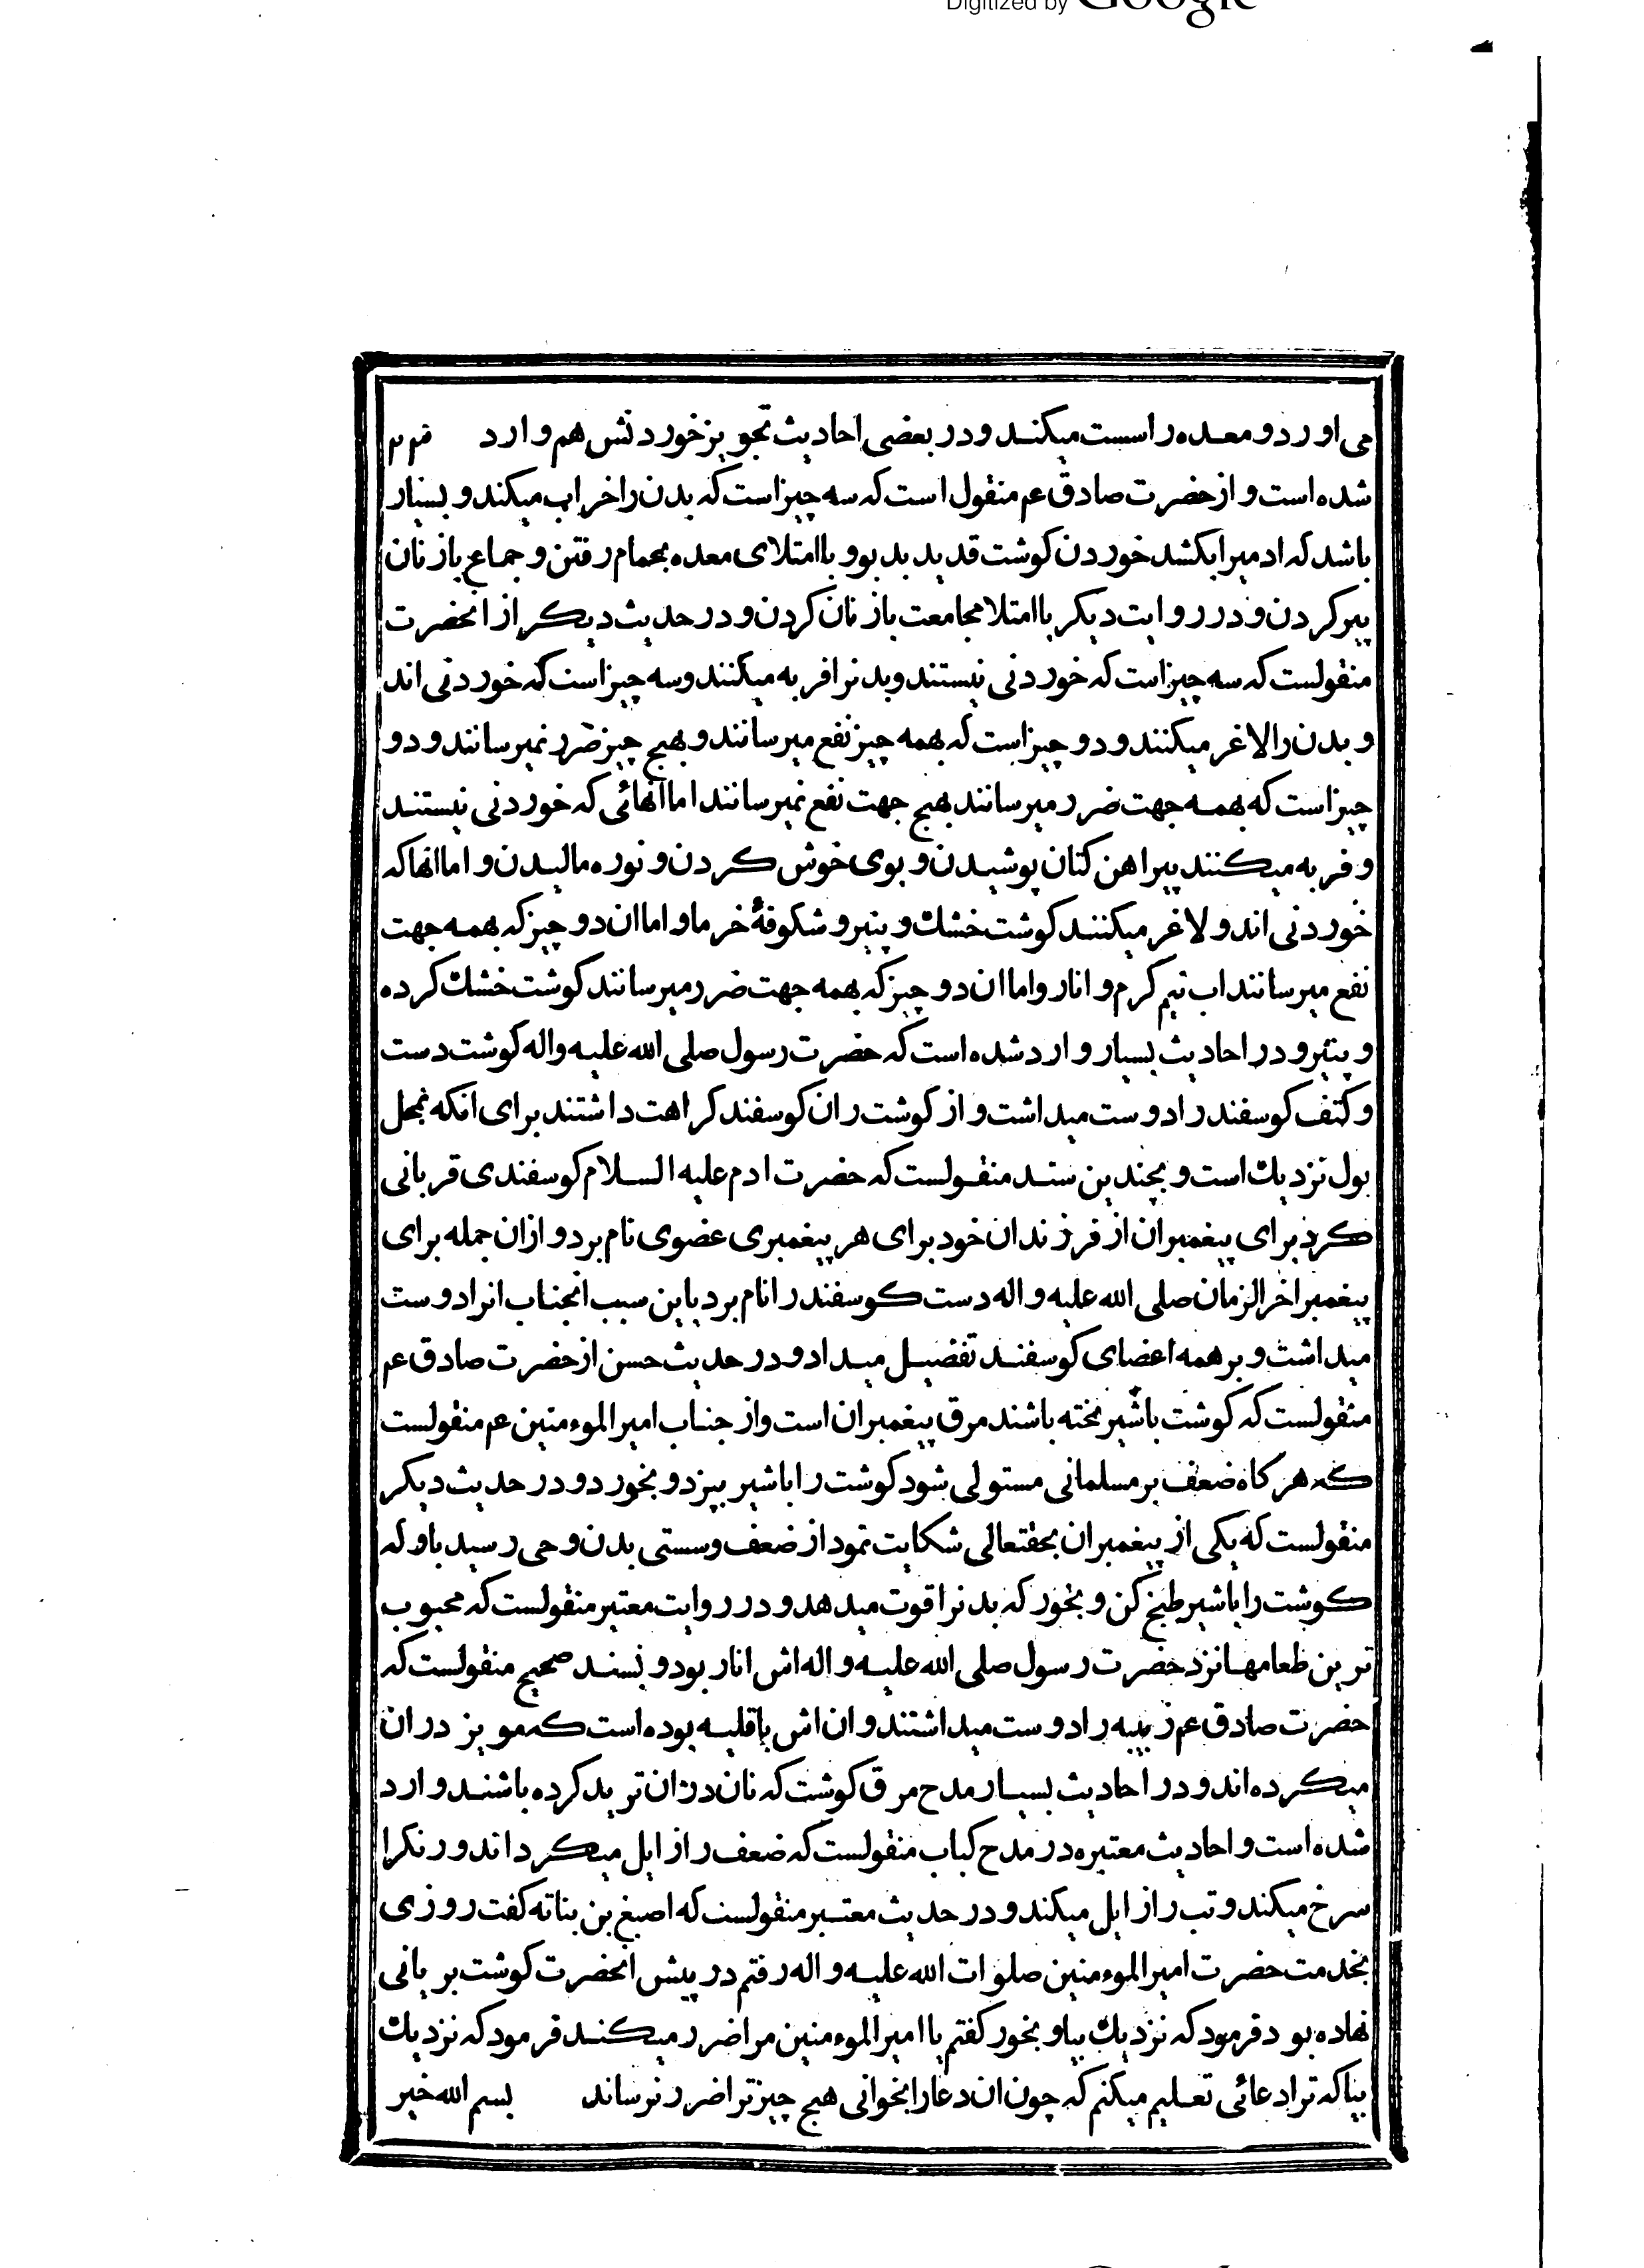 Digitized by Google
می اورد و معده را سست میکند و در بعضی احادیث تجویز خوردنش هم وارد
شده است و از حضرت صادق عم منقول است که سه چیز است که بدن را خراب میکند و بسیار
باشد که ادمیرا بکشد خوردن کوشت قدید بد بو و با امتلای معده بحمام رفتن و جماع با زنان
پیر کردن و در روایت دیکر با امتلا مجامعت با زنان کردن و در حدیث دیکر از انحضرت
منقولست که سه چیز است که خوردنی نیستند و بدنرا فربه میکنند و سه چیز است که خوردنی اند
و بدن را لاغر میکنند و دو چیز است که بهمه چیز نفع میرسانند و بهیچ چیز ضرر نمیرسانند و دو
چیز است که بهمه جهت ضرر میرسانند بهیچ جهت نفع نمیرسانند اما انهائی که خوردنی نیستند
و فربه میکنند پیراهن کتان پوشیدن و بوی خوش کردن و نوره مالیدن و اما انها که
خوردنی اند و لاغر میکنند کوشت خشك و پنیر و شکوفهٔ خرما و اما ان دو چیز که بهمه جهت
نفع میرسانند اب نیم کرم و انار و اما ان دو چیز که بهمه جهت ضرر میرسانند کوشت خشك کرده
و پنیر و در احادیث بسیار وارد شده است که حضرت رسول صلی الله علیه واله کوشت دست
و کتف کوسفند را دوست میداشت و از کوشت ران کوسفند کراهت داشتند برای انکه بمحل
بول نزدیك است و بچندین سند منقولست که حضرت ادم علیه السلام کوسفندی قربانی
کرد برای پیغمبران از فرزندان خود برای هر پیغمبری عضوی نام برد و ازان جمله برای
پیغمبر اخر الزمان صلی الله علیه واله دست کوسفند را نام برد باین سبب انجناب انرا دوست
میداشت و بر همه اعضای کوسفند تفضیل میداد و در حدیث حسن از حضرت صادق عم
منقولست که کوشت با شیر پخته باشند مرق پیغمبران است واز جناب امیر الموءمنین عم منقولست
که هر کاه ضعف بر مسلمانی مستولی شود کوشت را با شیر بپزد و بخورد و در حدیث دیکر
منقولست که یکی از پیغمبران بحقتعالی شکایت نمود از ضعف وسستی بدن وحی رسید باو که
کوشت را با شیر طبخ کن و بخور که بدنرا قوت میدهد و در روایت معتبر منقولست که محبوب
ترین طعامها نزد حضرت رسول صلی الله علیه واله اش انار بود و بسند صحیح منقولست که
حضرت صادق عم زبیبه را دوست میداشتند و ان اش یا قلیه بوده است که مویز دران
میکرده اند و در احادیث بسیار مدح مرق کوشت که نان دران ترید کرده باشند وارد
شده است و احادیث معتبره در مدح کباب منقولست که ضعف را زایل میکرداند و رنکرا
سرخ میکند و تب را زایل میکند و در حدیث معتبر منقولست که اصبغ بن بناته کفت روزی
بخدمت حضرت امیر الموءمنین صلوات الله علیه واله رفتم در پیش انحضرت کوشت بریانی
نهاده بود فرمود که نزدیك بیا و بخور کفتم یا امیر الموءمنین مرا ضرر میکند فرمود که نزدیك
بیا که ترا دعائی تعلیم میکنم که چون ان دعا را بخوانی هیچ چیز ترا ضرر نرساند بسم الله خیر